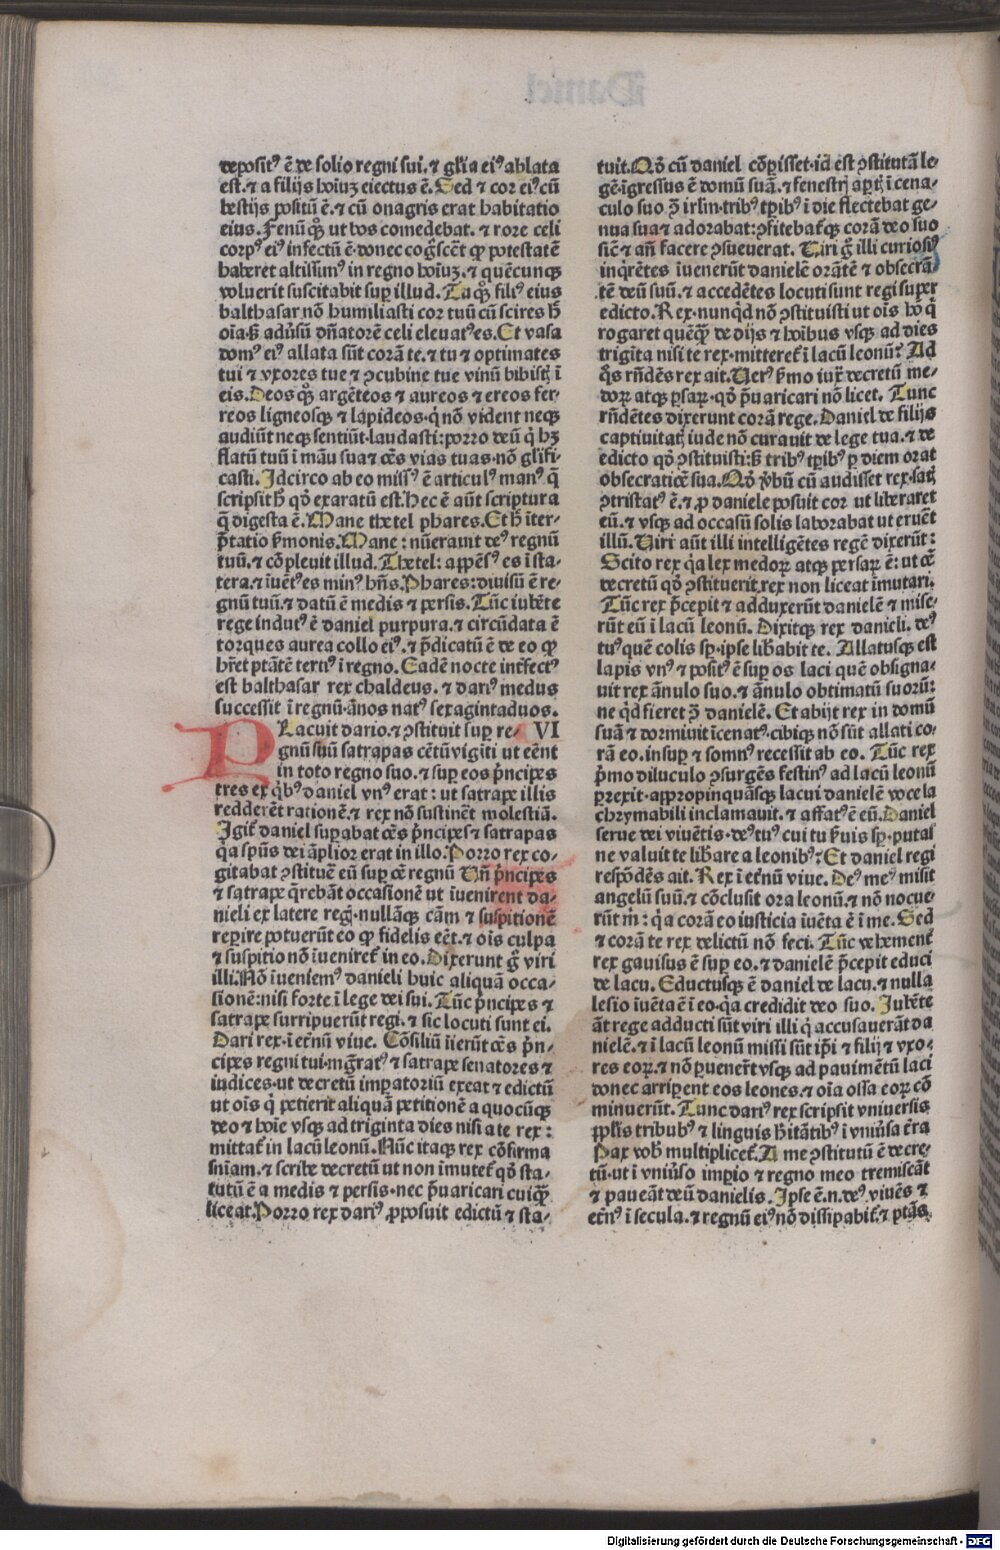 deposit⁹ ē de solio regni sui. ⁊ gl̄ia ei⁹ ablata
est. ⁊ a filijs hoīuꝫ eiectus ē. Sed ⁊ cor ei⁹ cū
bestijs positū ē. ⁊ cū onagris erat habitatio
eius. Fenū qꝫ ut bos comedebat. ⁊ rore celi
corp⁹ ei⁹ infectū ē. donec cog̃scēt ꝙ potestatē
haberet altissim⁹ in regno hoīuꝫ. ⁊ quēcunqꝫ
voluerit suscitabit suꝑ illud. Tu qꝫ fili⁹ eius
balthasar nō humiliasti cor tuū cū scires h̄
oīa. sꝫ adūsū dn̄atorē celi eleuat⁹ es. Et vasa
dom⁹ ei⁹ allata sūt corā te. ⁊ tu ⁊ optimates
tui ⁊ vxores tue ⁊ ꝯcubine tue vinū bibistꝭ ī
eis. Deos qꝫ argēteos ⁊ aureos ⁊ ereos fer-
reos ligneosqꝫ ⁊ lapideos. q̇ nō vident neqꝫ
audiūt neqꝫ sentiūt. laudasti: porro deū q̇ hꝫ
flatū tuū ī māu sua ⁊ oēs vias tuas. nō gl̄ifi-
casti. Idcirco ab eo miss⁹ ē articul⁹ man⁹ q̄
scripsit h̄ qđ exaratū est. Hec ē aūt scriptura
q̄ digesta ē. Mane thetel phares. Et h̄ īter-
p̄tatio s̄monis. Mane: nūerauit de⁹ regnū
tuū. ⁊ cōpleuit illud. Thetel: appēs⁹ es ī sta-
tera. ⁊ īuēt⁹ es min⁹ hn̄s. Phares: diuisū ē re-
gnū tuū. ⁊ datū ē medis ⁊ persis. Tūc iubēte
rege indut⁹ ē daniel purpura. ⁊ circūdata ē
torques aurea collo ei⁹. ⁊ p̄dicatū ē de eo ꝙ
hr̄et ptātē terti⁹ ī regno. Eadē nocte int̄fect⁹
est balthasar rex chaldeus. ⁊ dari⁹ medus
successit ī regnū. ānos nat⁹ sexagintaduos.
PLacuit dario. ⁊ ꝯstituit suꝑ re- VI
gnū suū satrapas cētūvigīti ut eēnt
in toto regno suo. ⁊ suꝑ eos p̄ncipes
tres ex q̇b⁹ daniel vn⁹ erat: ut satrape illis
redderēt rationē. ⁊ rex nō sustinēt molestiā.
Igit̃ daniel suꝑabat oēs p̄ncipes ⁊ satrapas
q̇a spūs dei āplior erat in illo. Porro rex co-
gitabat ꝯstituē eū suꝑ oē regnū Vn̄ p̄ncipes
⁊ satrape q̄rebāt occasionē ut īuenirent da-
nieli ex latere regꝭ. nullāqꝫ cām ⁊ suspitionē
reꝑire potuerūt eo ꝙ fidelis eēt. ⁊ oīs culpa
⁊ suspitio nō īueniret̃ in eo. Dixerunt ḡ viri
illi. Nō īueniem⁹ danieli huic aliquā occa-
sionē: nisi forte ī lege dei sui. Tūc p̄ncipes ⁊
satrape surripuerūt regi. ⁊ sic locuti sunt ei.
Dari rex. ī et̄nū viue. Cōsiliū īierūt oēs p̄n-
cipes regni tui. mḡrat⁹ ⁊ satrape senatores ⁊
iudices. ut decretū imꝑatoriū exeat ⁊ edictū
ut oīs q̇ petierit aliquā petitionē a quocūqꝫ
deo ⁊ hoīe vsqꝫ ad triginta dies nisi a te rex:
mittat̃ in lacū leonū. Nūc itaqꝫ rex cōfirma
sn̄iam. ⁊ scribe decretū ut non īmutet̃ qđ sta-
tutū ē a medis ⁊ persis. nec p̄uaricari cuiqꝫ
liceat. Porro rex dari⁹ ꝓposuit edictū ⁊ sta-
tuit. Qđ cū daniel cōꝑisset. id est ꝯstitutā le-
gē. īgressus ē domū suā. ⁊ fenestrꝭ aꝑtꝭ ī cena-
culo suo ꝯ̄ irl̄m. trib⁹ tꝑib⁹ ī die flectebat ge-
nua sua ⁊ adorabat: ꝯfitebat̃qꝫ corā deo suo
sic̄ ⁊ an̄ facere ꝯsueuerat. Viri ḡ illi curiosi⁹
inq̇rētes īuenerūt danielē orātē ⁊ obsecrā-
tē deū suū. ⁊ accedētes locuti sunt regi super
edicto. Rex. nunq̇d nō ꝯstituisti ut oīs hō q̇
rogaret quēqꝫ de dijs ⁊ hoībus vsqꝫ ad dies
trigīta nisi te rex. mitteret̃ ī lacū leonū? Ad
q̇s rn̄dēs rex ait. Ver⁹ s̄mo iux̄ decretū me-
doꝝ atqꝫ ꝑsaꝝ. qđ p̄uaricari nō licet. Tunc
rn̄dētes dixerunt corā rege. Daniel de filijs
captiuitatꝭ iude nō curauit de lege tua. ⁊ de
edicto qđ ꝯstituisti: sꝫ trib⁹ tꝑib⁹ ꝑ diem orat
obsecratiōe sua. Qđ v̄bū cū audisset rex. satꝭ
ꝯtristat⁹ ē. ⁊ ꝓ daniele posuit cor ut liberaret
eū. ⁊ vsqꝫ ad occasū solis laborabat ut eruēt
illū. Viri aūt illi intelligētes regē dixerūt:
Scito rex q̇a lex medoꝝ atqꝫ persaꝝ ē: ut oē
decretū qđ ꝯstituerit. rex non liceat īmutari.
Tūc rex p̄cepit ⁊ adduxerūt danielē ⁊ mise-
rūt eū ī lacū leonū. Dixitqꝫ rex danieli. de⁹
tu⁹ quē colis sꝑ. ipse lib̄abit te. Allatusqꝫ est
lapis vn⁹ ⁊ posit⁹ ē suꝑ os laci quē obsigna-
uit rex ānulo suo. ⁊ ānulo obtimatū suorū:
ne q̇d fieret ꝯ̄ danielē. Et abijt rex in domū
suā ⁊ dormiuit īcenat⁹. cibiqꝫ nō sūt allati co-
rā eo. insuꝑ ⁊ somn⁹ recessit ab eo. Tūc rex
p̄mo diluculo ꝯsurgēs festin⁹ ad lacū leonū
ꝑrexit. appropinquāsqꝫ lacui danielē voce la-
chrymabili inclamauit. ⁊ affat⁹ ē eū. Daniel
serue dei viuētis. de⁹ tu⁹ cui tu s̄uis sꝑ. putas
ne valuit te lib̄are a leonib⁹? Et daniel regi
respōdēs ait. Rex ī et̄nū viue. De⁹ me⁹ misit
angelū suū. ⁊ cōclusit ora leonū. ⁊ nō nocue-
rūt m̄: q̇a corā eo iusticia īuēta ē ī me. Sed
⁊ corā te rex delictū nō feci. Tūc vehement̃
rex gauisus ē suꝑ eo. ⁊ danielē p̄cepit educi
de lacu. Eductusqꝫ ē daniel de lacu. ⁊ nulla
lesio īuēta ē ī eo. q̇a credidit deo suo. Iubēte
āt rege adducti sūt viri illi q̇ accusauerāt da
nielē. ⁊ ī lacū leonū missi sūt ip̄i ⁊ filij ⁊ vxo-
res eoꝝ. ⁊ nō ꝑuenerūt vsqꝫ ad pauimētū laci
donec arriꝑent eos leones. ⁊ oīa ossa eoꝝ cō
minuerūt. Tunc dari⁹ rex scripsit vniuersis
ppl̄is tribub⁹ ⁊ linguis h̄itātib⁹ ī vniūsa t̄ra
Pax vob̄ multiplicet̃. A me ꝯstitutū ē decre-
tū. ut ī vniūso imꝑio ⁊ regno meo tremiscāt
⁊ paueāt deū danielis. Ipse ē.n. de⁹ viuēs ⁊
et̄n⁹ ī secula. ⁊ regnū ei⁹ nō dissipabit̃. ⁊ ptās
Digitalisierung gefördert durch die Deutsche Forschungsgemeinschaft - DFG